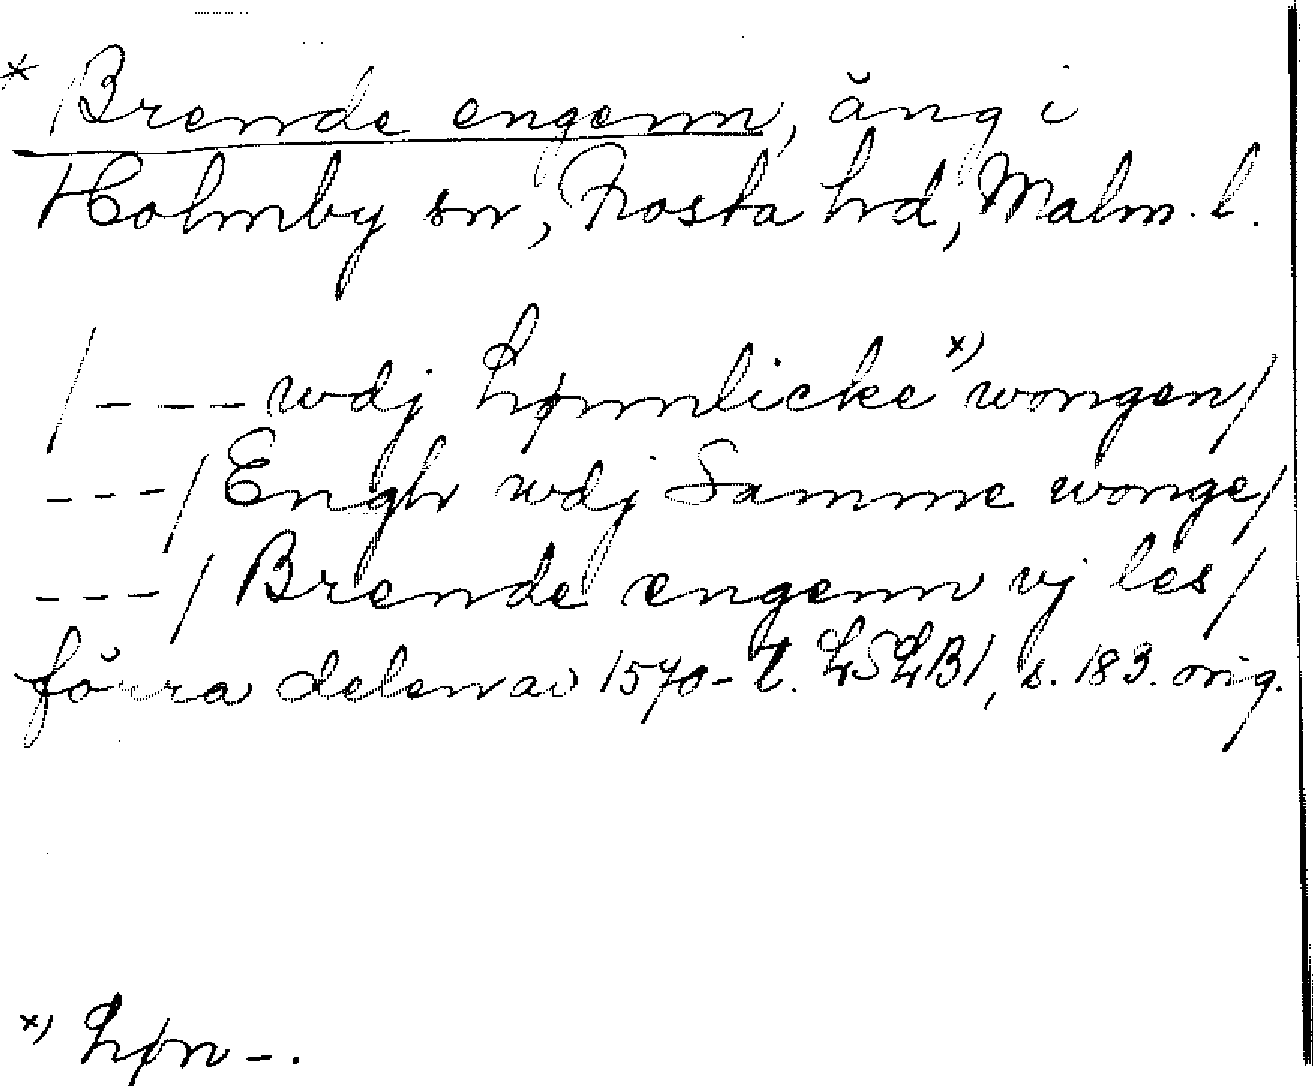 * Brende engenn, äng i
Holmby sn, Frosta hd, Malm. l.
/ - - - wdj hønnlicke x) wongen/
- - - / Engh wdj Samme wonge/
- - - / Brende engenn vj les/
förra delen av 1570-t. LSLB1, s. 183. orig.
x) høn -.